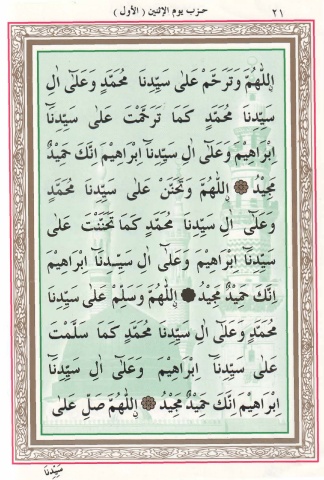 ٢١ حزب يوم الإثنين (الأول)
اَللّٰهُمَّ وَتَرَحَّمْ عَلٰى سَيِّدِنَا مُحَمَّدٍ وَعَلٰٓى اٰلِ
سَيِّدِنَا مُحَمَّدٍ كَمَا تَرَحَّمْتَ عَلٰى سَيِّدِنَٓا
اِبْرَاهِيمَ وَعَلٰٓى اٰلِ سَيِّدِنَٓا اِبْرَاهِيمَ اِنَّكَ حَمِيدٌ
مَجِيدٌ ۞ اَللّٰهُمَّ وَتَحَنَّنْ عَلٰى سَيِّدِنَا مُحَمَّدٍ
وَعَلٰٓى اٰلِ سَيِّدِنَا مُحَمَّدٍ كَمَا تَحَنَّنْتَ عَلٰى
سَيِّدِنَٓا اِبْرَاهِيمَ وَعَلٰٓى اٰلِ سَيِّدِنَٓا اِبْرَاهِيمَ
اِنَّكَ حَمِيدٌ مَجِيدٌ ۞ اَللّٰهُمَّ وَسَلِّمْ عَلٰى سَيِّدِنَا
مُحَمَّدٍ وَعَلٰٓى اٰلِ سَيِّدِنَا مُحَمَّدٍ كَمَا سَلَّمْتَ
عَلٰى سَيِّدِنَٓا اِبْرَاهِيمَ وَعَلٰٓى اٰلِ سَيِّدِنَٓا
اِبْرَاهِيمَ اِنَّكَ حَمِيدٌ مَجِيدٌ ۞ اَللّٰهُمَّ صَلِّ عَلٰى
سَيِّدِنَا